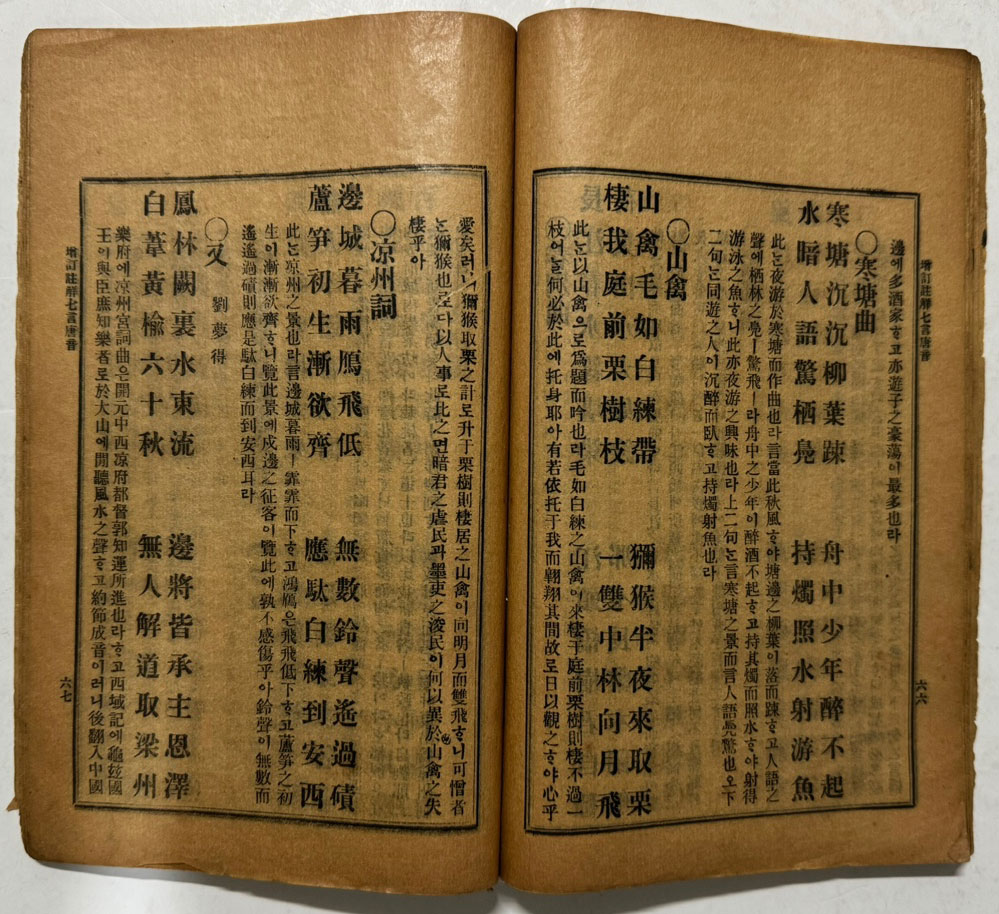 增訂註解七言唐音
六六
邊에多酒家ᄒᆞ고亦遊子之豪蕩이最多也라
〇寒塘曲
寒塘沉沉柳葉踈 舟中少年醉不起
水暗人語驚栖鳧 持燭照水射游魚
此ᄂᆞᆫ夜游於寒塘而作曲也라言當此秋風ᄒᆞ야塘邊之柳葉이落而踈ᄒᆞ고人語之
聲에栖林之鳧ㅣ驚飛ㅣ라舟中之少年이醉酒不起ᄒᆞ고持其燭而照水ᄒᆞ야射得
游泳之魚ᄒᆞ니此亦夜游之興昧也라上二句ᄂᆞᆫ言寒塘之景而言人語鳧驚也오下
二句ᄂᆞᆫ言同遊之人이沉醉而臥ᄒᆞ고持燭射魚也라
〇山禽
山禽毛如白練帶 獼猴半夜來取栗
棲我庭前栗樹枝 一雙中林向月飛
此ᄂᆞᆫ以山禽으로爲題而吟也라毛如白練之山禽이來棲于庭前栗樹則棲不過一
枝어ᄂᆞᆯ何必於此에托身耶아有若依托于我而翱翔其間故로日以觀之ᄒᆞ야心乎
愛矣러니獼猴取栗之計로升于栗樹則棲居之山禽이向明月而雙飛ᄒᆞ니可憎者
ᄂᆞᆫ獼猴也로다以人事로比之면暗君之虐民과墨吏之浚民이何以異於山禽之失
棲乎아
〇凉州詞
邊城暮雨鴈飛低 無數鈴聲遙過磧
蘆笋初生漸欲齊 應馱白練到安西
此ᄂᆞᆫ凉州之景也라言邊城暮雨ㅣ霏霏而下ᄒᆞ고鴻鴈은飛飛低下ᄒᆞ고蘆笋之初
生이漸漸欲齊ᄒᆞ니覽此景에戍邊之征客이覽此에孰不感傷乎아鈴聲이無數而
遙遙過磧則應是馱白練而到安西耳라
〇又 劉夢得
鳳林關裏水東流 邊將皆承主恩澤
白葦黃楡六十秋 無人解道取梁州
樂府에凉州宮詞曲은開元中西凉府都督郭知運所進也라ᄒᆞ고西域記에龜玆國
王이與臣庶知樂者로於大山에間聽風水之聲ᄒᆞ고約節成音이러니後翻入中國
增訂註解七言唐音
六七